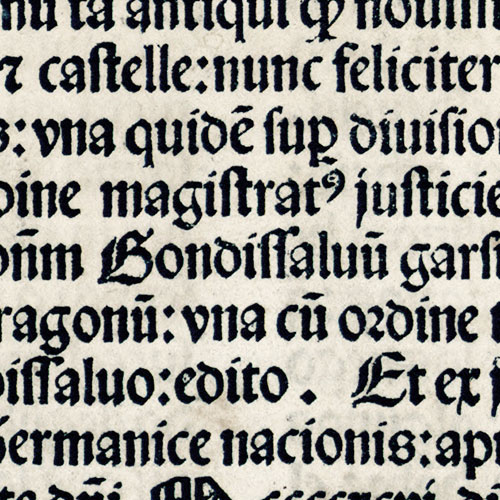 mū ta antiqui qȝ nouum
⁊ castelle: nunc feliciter
s: vna quidē sup̱ diuisio
dine magistratꝰ justicie
dn̄m Gondissaluū garsi
ragonū: vna cū ordine
dissaluo: edito . Et ex
Germanice nacionis: ap